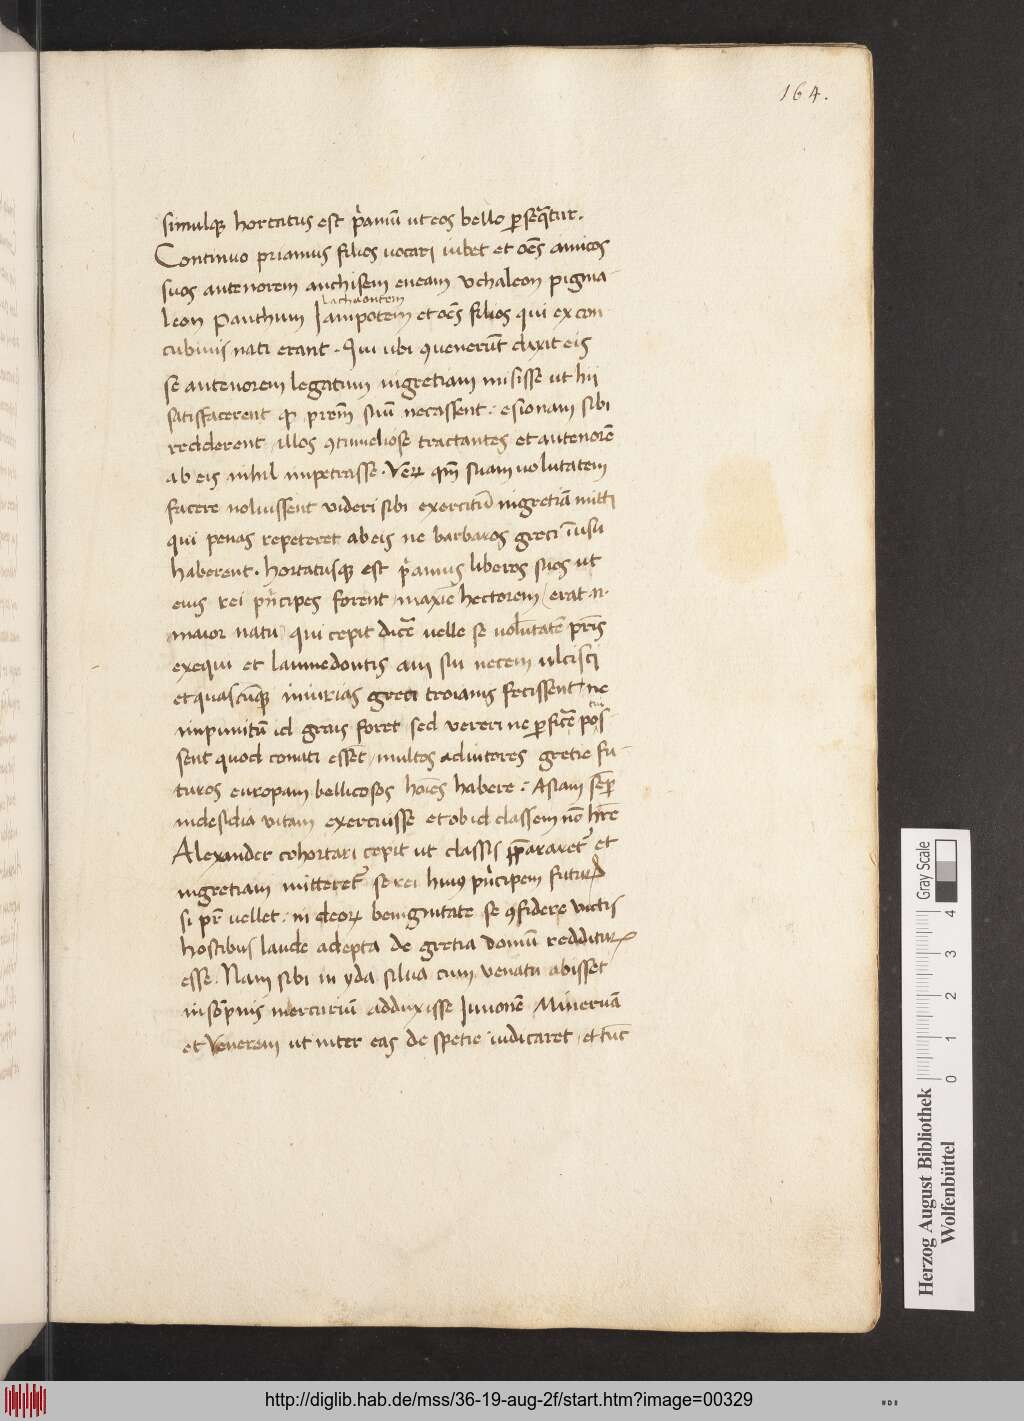 164.
simulqꝫ hortatus est p̃amiũ ut eos bello ꝑseq̃tur.
Continuo priamus filios uocari iubet et oẽs amicos
suos antenorem anchisem eneam vchaleon pigma-
lachaontem
leon panthum Iampotem et oẽs filios qui ex con
cubinis nati erant. Qui ubi ꝯuenerũt dixit eis
se antenorem legatum ingretiam misisse ut hii
satisfacerent qꝫ prẽm suũ necassent: esionam sibi
redderent, illos ꝯtumeliose tractantes et antenorẽ
ab eis nihil impetrasse. Veꝝ qm̃ suam uolutatem
facere noluissent videri sibi exercitũ ingretiã mitti
qui penas repeteret ab eis ne barbaros greci ĩrisu
haberent. hortatusqꝫ est p̃amus liberos suos ut
eius rei pñcipes forent, maxiẽ hectorem, erat .n.
maior natu, qui cepit dicẽ uelle se uolũtatẽ prĩs
exequi et laumedontis aui sui necem ulcisci
et quascũqꝫ iniurias greci troianis fecissent, ne
impunitũ id grais foret sed vereri ne ꝑficẽ pos
sent quod conati essẽt, multos adiutores gretie fu-
turos europam bellicosos hoĩes habere: Asiam sẽꝑ
indesidia vitam exercuisse et ob id classem nõ hr̃e
Alexander cohortari cepit ut classis p̃ꝑararet᷑ et
ingretiam mitteret᷑ se rei huiꝰ pñcipem futuꝝ
si pr̃ uellet: in deoꝝ benignitate se ꝯfidere victis
hostibus laude adepta de gretia domũ reddituꝝ
esse. Nam sibi in yda silua cum venatu abisset
insõpnis mercuriũ adduxisse Iunonẽ Mineruã
et Venerem ut inter eas de spetie iudicaret, et tũc
Herzog August Bibliothek
Wolfenbüttel
Gray Scale
0 1 2 3 4
http://diglib.hab.de/mss/36-19-aug-2f/start.htm?image=00329